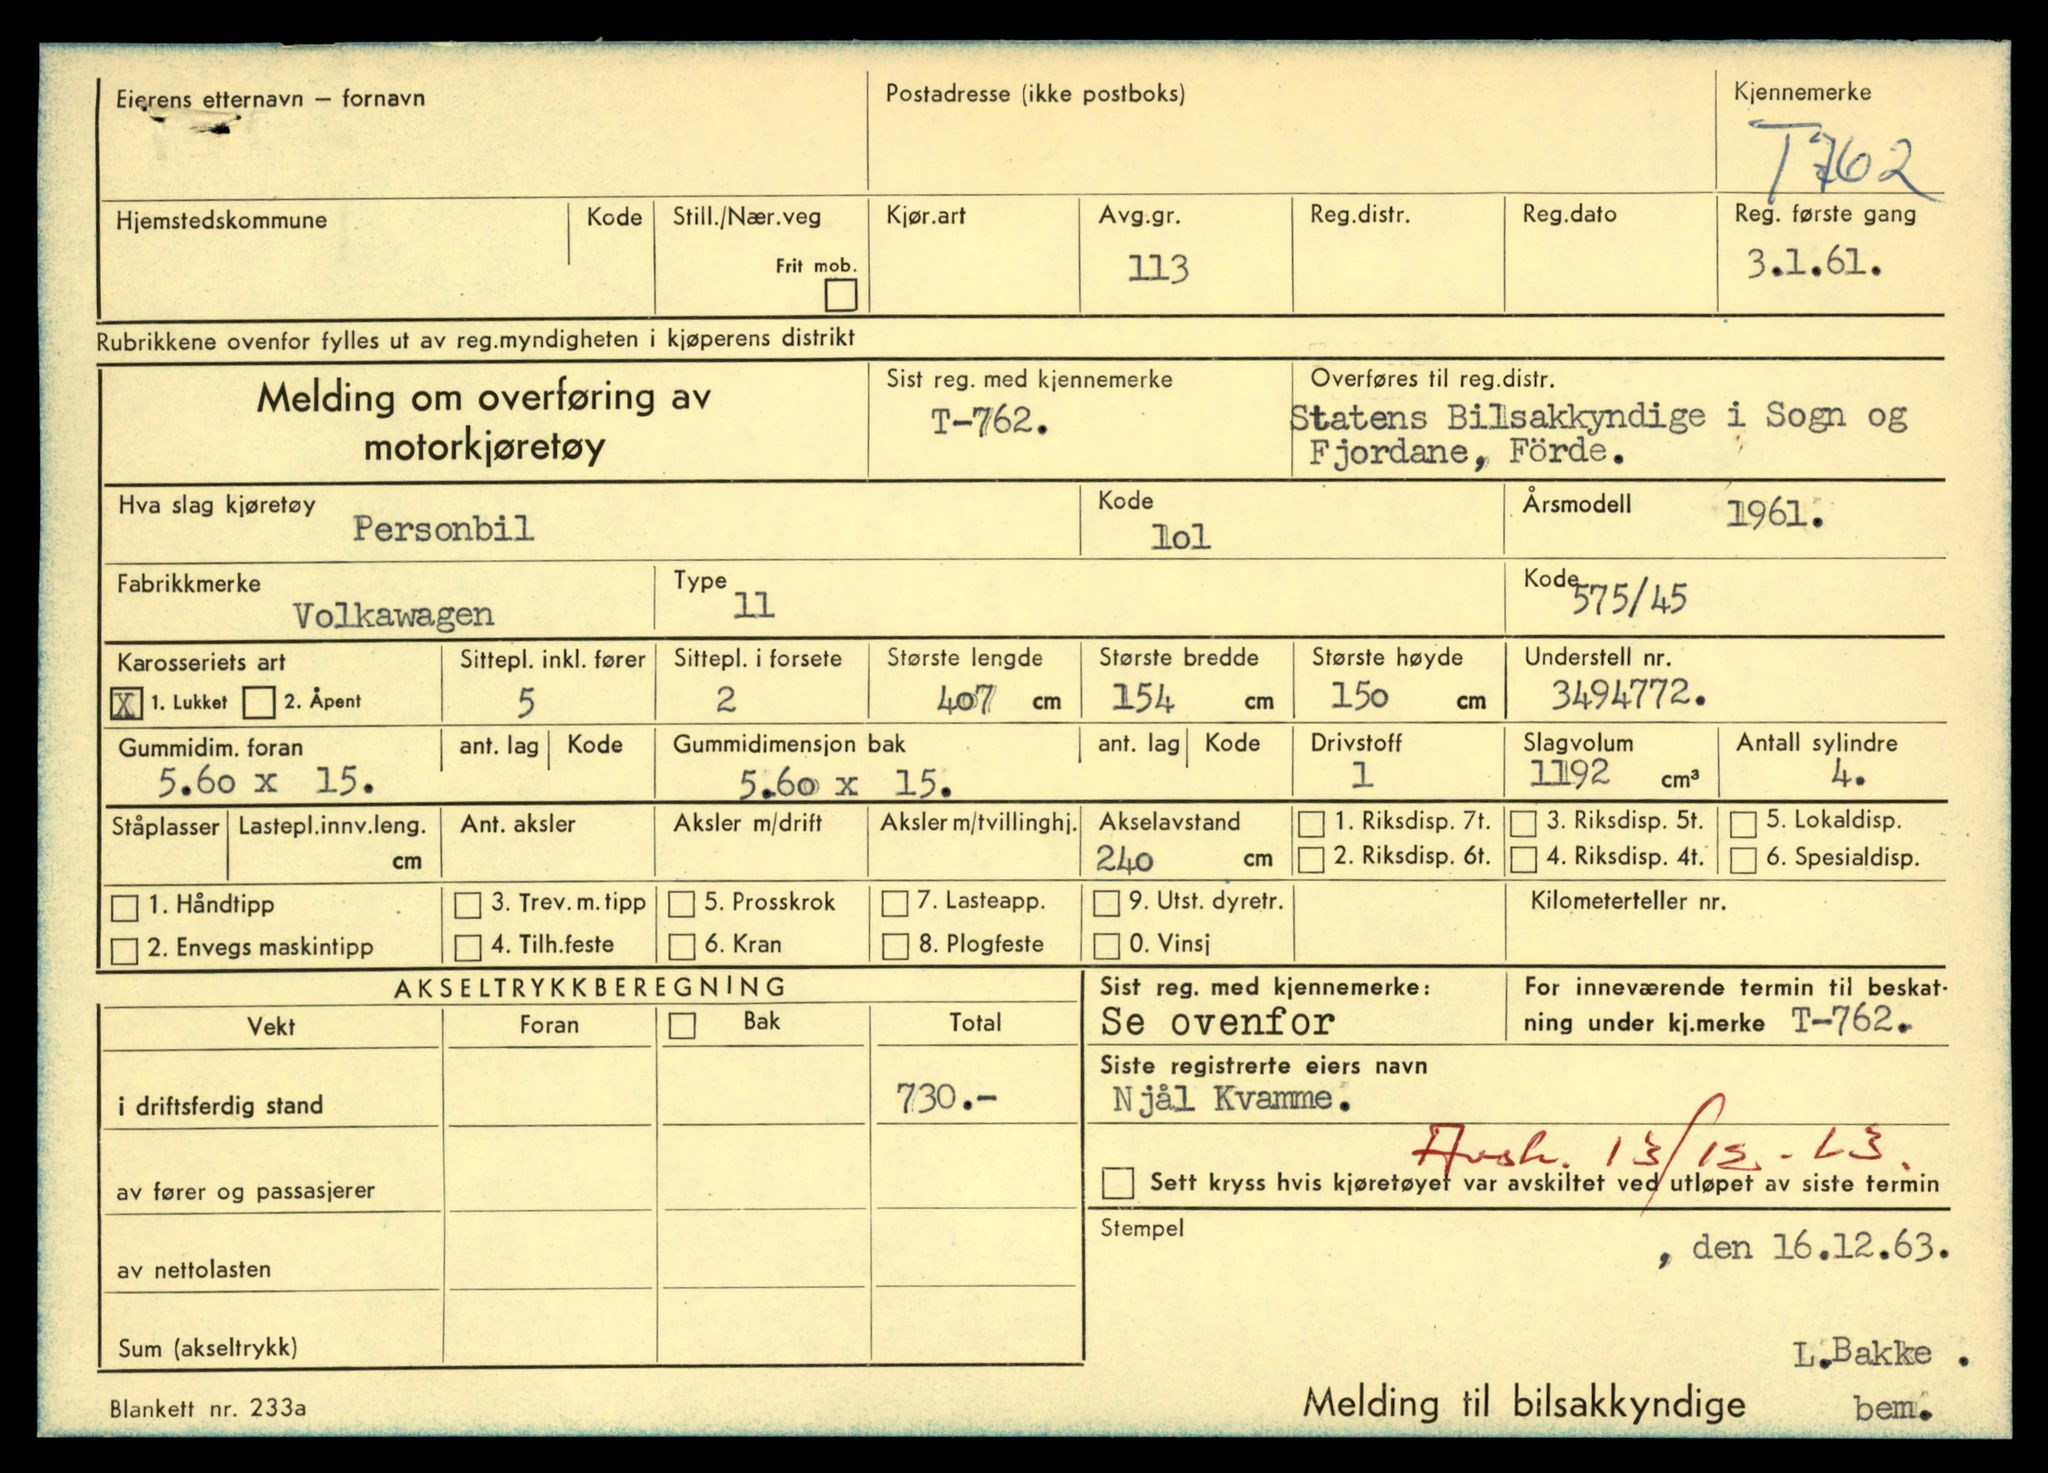 Eierens etternavn – fornavn
Postadresse (ikke postboks)
Kjennemerke
T762
Hjemstedskommune
Kode
Still./Nær.veg
Frit mob.
Kjør.art
Avg.gr.
113
Reg.distr.
Reg.dato
Reg. første gang
3.1.61.
Rubrikkene ovenfor fylles ut av reg.myndigheten i kjøperens distrikt
Melding om overføring av
motorkjøretøy
Sist reg. med kjennemerke
T-762.
Overføres til reg.distr.
Statens Bilsakkyndige i Sogn og
Fjordane, Förde.
Hva slag kjøretøy
Personbil
Kode
lol
Årsmodell
1961.
Fabrikkmerke
Volkawagen
Type
11
Kode
575/45
Karosseriets art
X 1. Lukket 2. Åpent
Sittepl. inkl. fører
5
Sittepl. i forsete
2
Største lengde
407 cm
Største bredde
154 cm
Største høyde
150 cm
Understell nr.
3494772.
Gummidim. foran
5.60 x 15.
ant. lag
Kode
Gummidimensjon bak
5.60 x 15.
ant. lag
Kode
Drivstoff
1
Slagvolum
1192 cm³
Antall sylindre
4.
Ståplasser
Lastepl.innv.leng.
cm
Ant. aksler
Aksler m/drift
Aksler m/tvillinghj.
Akselavstand
240 cm
1. Riksdisp. 7t.
2. Riksdisp. 6t.
3. Riksdisp. 5t.
4. Riksdisp. 4t.
5. Lokaldisp.
6. Spesialdisp.
1. Håndtipp
2. Envegs maskintipp
3. Trev. m. tipp
4. Tilh.feste
5. Prosskrok
6. Kran
7. Lasteapp.
8. Plogfeste
9. Utst. dyretr.
0. Vinsj
Kilometerteller nr.
AKSELTRYKKBEREGNING
Vekt
Foran
Bak
Total
i driftsferdig stand
730.-
av fører og passasjerer
av nettolasten
Sum (akseltrykk)
Sist reg. med kjennemerke:
Se ovenfor
For inneværende termin til beskat-
ning under kj.merke T-762.
Siste registrerte eiers navn
Njål Kvamme.
Avsk. 13/12.-63.
Sett kryss hvis kjøretøyet var avskiltet ved utløpet av siste termin
Stempel
, den 16.12.63.
L.Bakke .
bem.
Blankett nr. 233a
Melding til bilsakkyndige